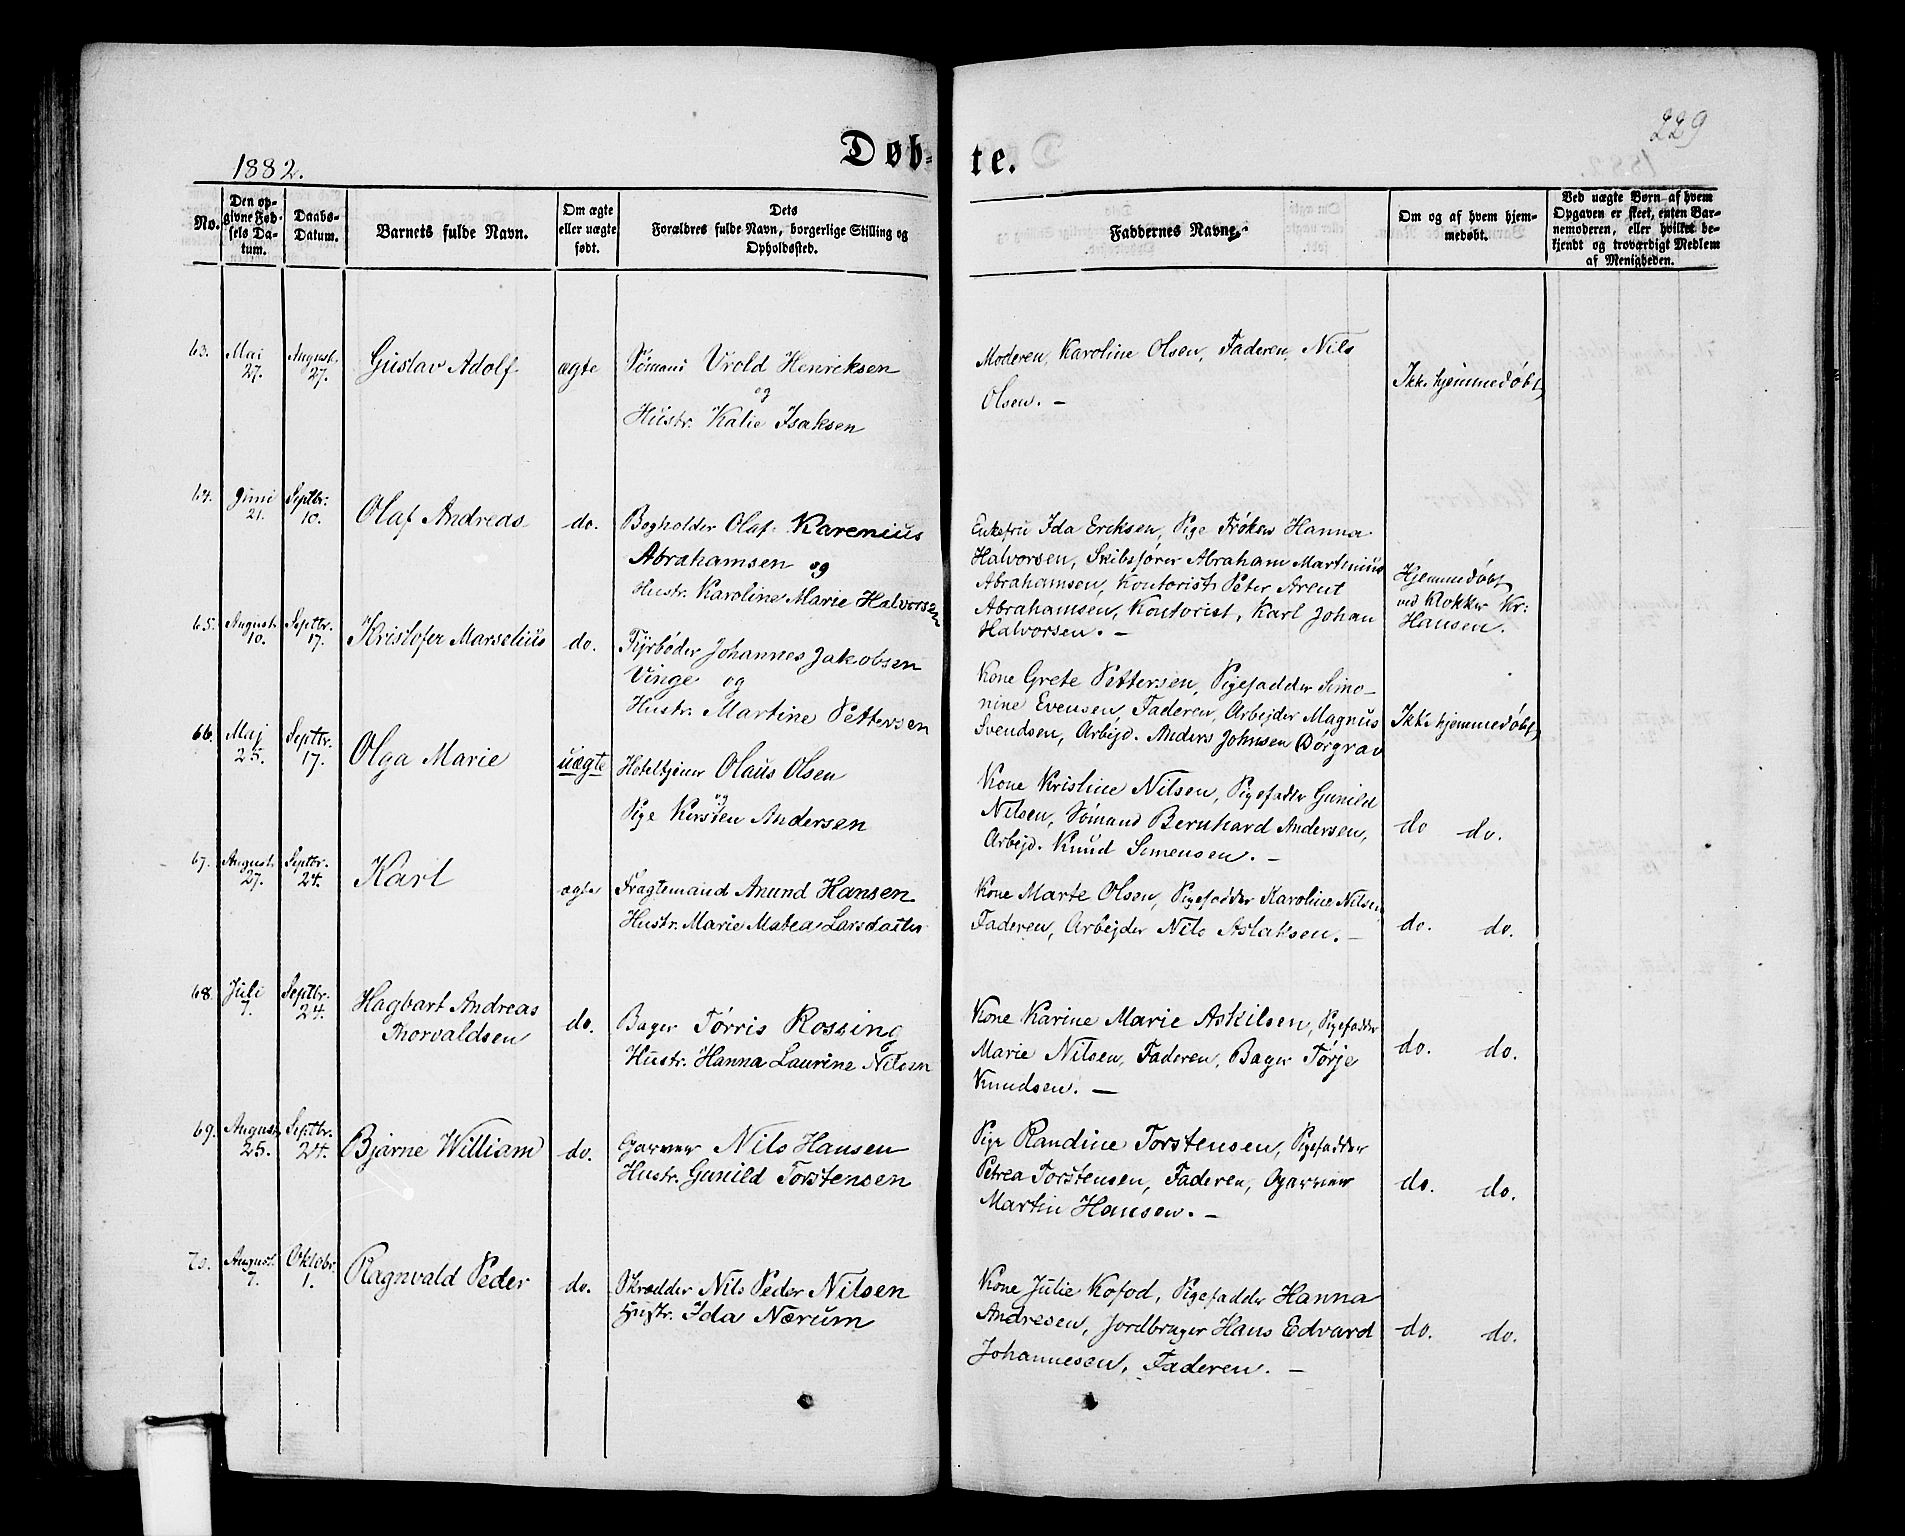 229
1882.
Døb-
te.
No.
Den op-
givne Fød-
sels Da-
tum.
Daabs-
Datum.
Barnets fulde Navn.
Om ægte
eller uægte
født.
Dets
Forældres fulde Navn, borgerlige Stilling og
Opholdssted.
Faddernes Navne.
Om og af hvem hjem-
medøbt.
Ved uægte Børn af hvem
Opgaven er skeet, enten Bar-
nemoderen, eller hvilket be-
kjendt og troværdigt Medlem
af Menigheden.
63.
Mai
27.
August.
27.
Gustav Adolf
ægte
Sømand Vrold Henriksen
og
Hustr. Katie Isaksen
Moderen, Karoline Olsen, Faderen, Nils
Olsen. —
Ikke hjemmedøbt,
64.
Juni
21.
Septbr.
10.
Olaf Andreas
do.
Bogholder Olaf Karenius
Abrahamsen og
Hustr. Karoline Marie Halvorsen
Enkefru Ida Ericksen, Pige Frøken Hanna
Halvorsen, Skibsfører Abraham Martinius
Abrahamsen, Kontorist Peter Arent
Abrahamsen, Kontorist, Karl Johan
Halvorsen. —
Hjemmedøbt
ved Klokker Kr:
Hansen.
65.
August.
10.
Septbr.
17.
Kristofer Marselius
do.
Fyrbøder Johannes Jakobsen
Vinge og
Hustr. Martine Pettersen
Kone Grete Pettersen, Pigefadder Simo-
nine Evensen, Faderen, Arbejder Magnus
Svendsen, Arbejd. Anders Johnsen Børgrav
Ikke hjemmedøbt,
66.
Maj
25.
Septbr.
17.
Olga Marie
uægte
Hoteltjener Olaus Olsen
og
Pige Kirsten Andersen
Kone Kristine Nilsen, Pigefadder Gunild
Nilsen, Sømand Bernhard Andersen,
Arbejd. Knud Simensen. —
do do.
67.
August.
27.
Septbr.
24.
Karl
ægte
Fragtemand Anund Hansen
Hustr. Marie Matea Larsdatter
Kone Marte Olsen, Pigefadder Karoline Nilsen,
Faderen, Arbejder Nils Aslaksen. —
do. do.
68.
Juli
7.
Septbr.
24.
Hagbart Andreas
Thorvaldsen
do.
Bager Tørris Rossing
Hustr. Hanna Laurine Nilsen
Kone Karine Marie Askilsen, Pigefadder
Marie Nilsen, Faderen, Bager Tørje
Knudsen. —
do. do.
69.
August
25.
Septbr.
24.
Bjarne William
do.
Garver Nils Hansen
Hustr. Gunild Torstensen
Pige Randine Torstensen, Pigefadder
Petrea Torstensen, Faderen, Garver
Martin Hansen. —
do. do.
70.
August.
7.
Oktobr.
1.
Ragnvald Peder
do.
Skrædder Nils Peder Nilsen
Hustr. Ida Nærum
Kone Julie Kofod, Pigefadder Hanna
Andresen, Jordbruger Hans Edvard
Johannesen, Faderen. —
do. do.